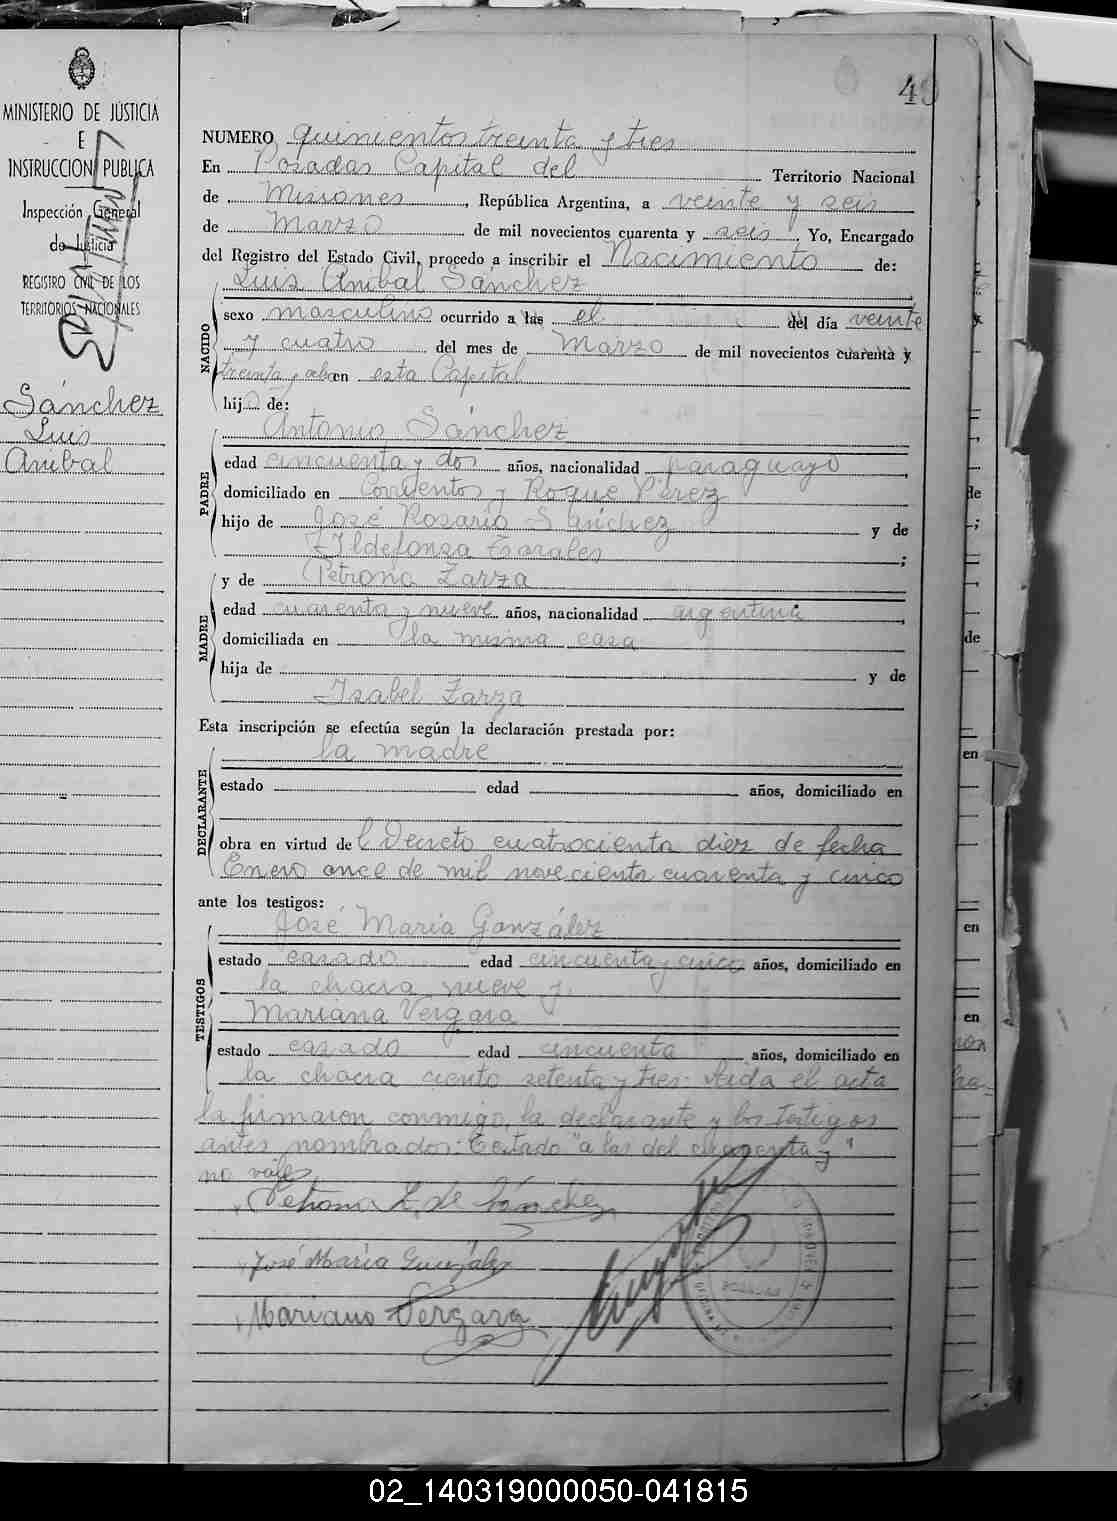 49
MINISTERIO DE JUSTICIA
E
INSTRUCCION PUBLICA
Inspección General
de Justicia
REGISTRO CIVIL DE LOS
TERRITORIOS NACIONALES
Sánchez
Luis
Anibal
NUMERO quinientos treinta y tres
En Posadas Capital del Territorio Nacional
de Misiones, República Argentina, a veinte y seis
de Marzo de mil novecientos cuarenta y seis, Yo, Encargado
del Registro del Estado Civil, procedo a inscribir el Nacimiento de:
Luis Anibal Sánchez
NACIDO
sexo masculino ocurrido a las el del día veinte
y cuatro del mes de Marzo de mil novecientos cuarenta y
treinta y ocho en esta Capital
hijo de:
Antonio Sánchez
PADRE
edad cincuenta y dos años, nacionalidad paraguayo
domiciliado en Corrientes y Roque Pérez
hijo de José Rosario Sánchez y de
Ildefonza Corrales;
y de Petrona Zarza
MADRE
edad cuarenta y nueve años, nacionalidad argentina
domiciliada en la misma casa
hija de y de
Isabel Zarza
Esta inscripción se efectúa según la declaración prestada por:
la madre
DECLARANTE
estado edad años, domiciliado en
obra en virtud del Decreto cuatrocientos diez de fecha
Enero once de mil novecientos cuarenta y cinco
ante los testigos:
José María González
TESTIGOS
estado casado edad cincuenta y cinco años, domiciliado en
la chacra nueve y
Mariana Vergara
estado casado edad cincuenta años, domiciliado en
la chacra ciento setenta y tres. Leida el acta
la firmaron conmigo, la declarante y los testigos
antes nombrados: Testado "a las del cuarenta y"
no vale
Petrona Z. de Sánchez
José María González
Mariano Vergara
POSADAS
02_140319000050-041815